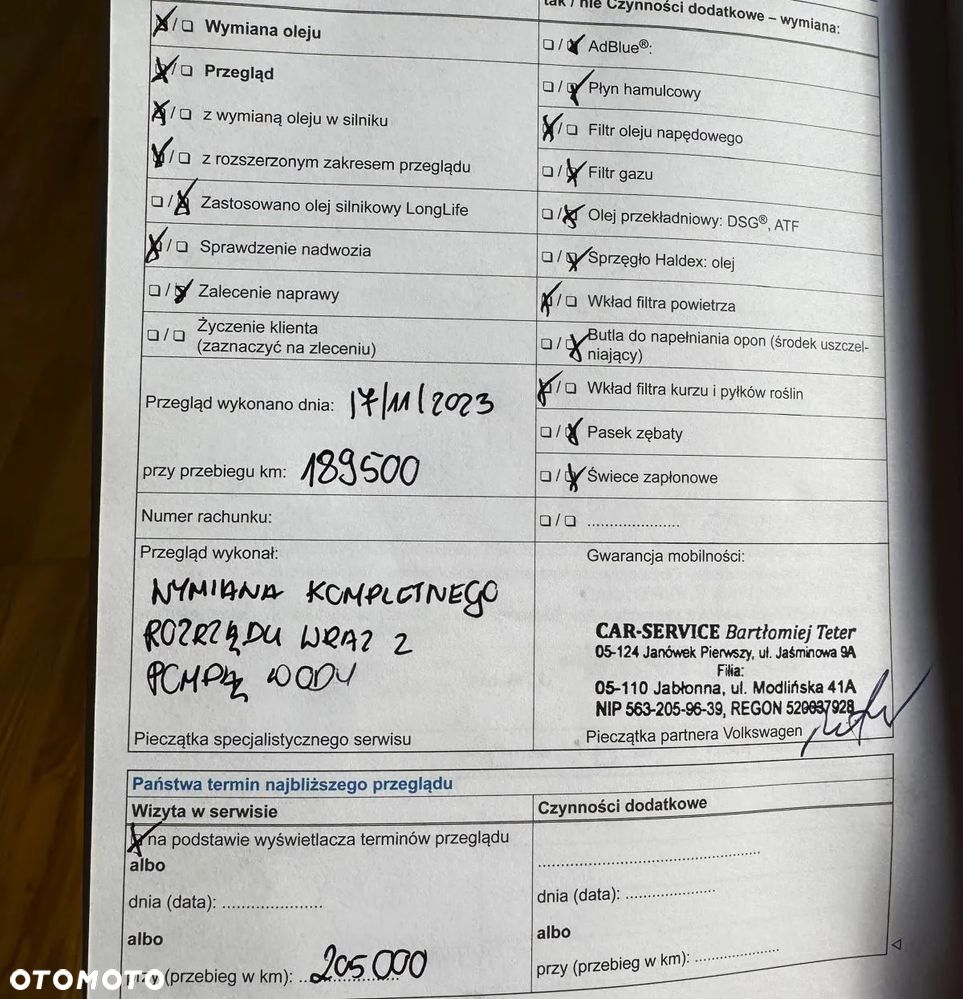 tak / nie Czynności dodatkowe – wymiana:
Wymiana oleju
Przegląd
z wymianą oleju w silniku
z rozszerzonym zakresem przeglądu
Zastosowano olej silnikowy LongLife
Sprawdzenie nadwozia
Zalecenie naprawy
Życzenie klienta
(zaznaczyć na zleceniu)
Przegląd wykonano dnia: 17/11/2023
przy przebiegu km: 189500
Numer rachunku:
Przegląd wykonał:
WYMIANA KOMPLETNEGO
ROZRZĄDU WRAZ Z
POMPĄ WODY
Pieczątka specjalistycznego serwisu
AdBlue®:
Płyn hamulcowy
Filtr oleju napędowego
Filtr gazu
Olej przekładniowy: DSG®, ATF
Sprzęgło Haldex: olej
Wkład filtra powietrza
Butla do napełniania opon (środek uszczel-
niający)
Wkład filtra kurzu i pyłków roślin
Pasek zębaty
Świece zapłonowe
.....................
Gwarancja mobilności:
CAR-SERVICE Bartłomiej Teter
05-124 Janówek Pierwszy, ul. Jaśminowa 9A
Filia:
05-110 Jabłonna, ul. Modlińska 41A
NIP 563-205-96-39, REGON 520037928
Pieczątka partnera Volkswagen
Państwa termin najbliższego przeglądu
Wizyta w serwisie
na podstawie wyświetlacza terminów przeglądu
albo
dnia (data): .......................
albo
przy (przebieg w km): 205000
Czynności dodatkowe
..................................................
dnia (data): ....................
albo
przy (przebieg w km): ...................
OTOMOTO